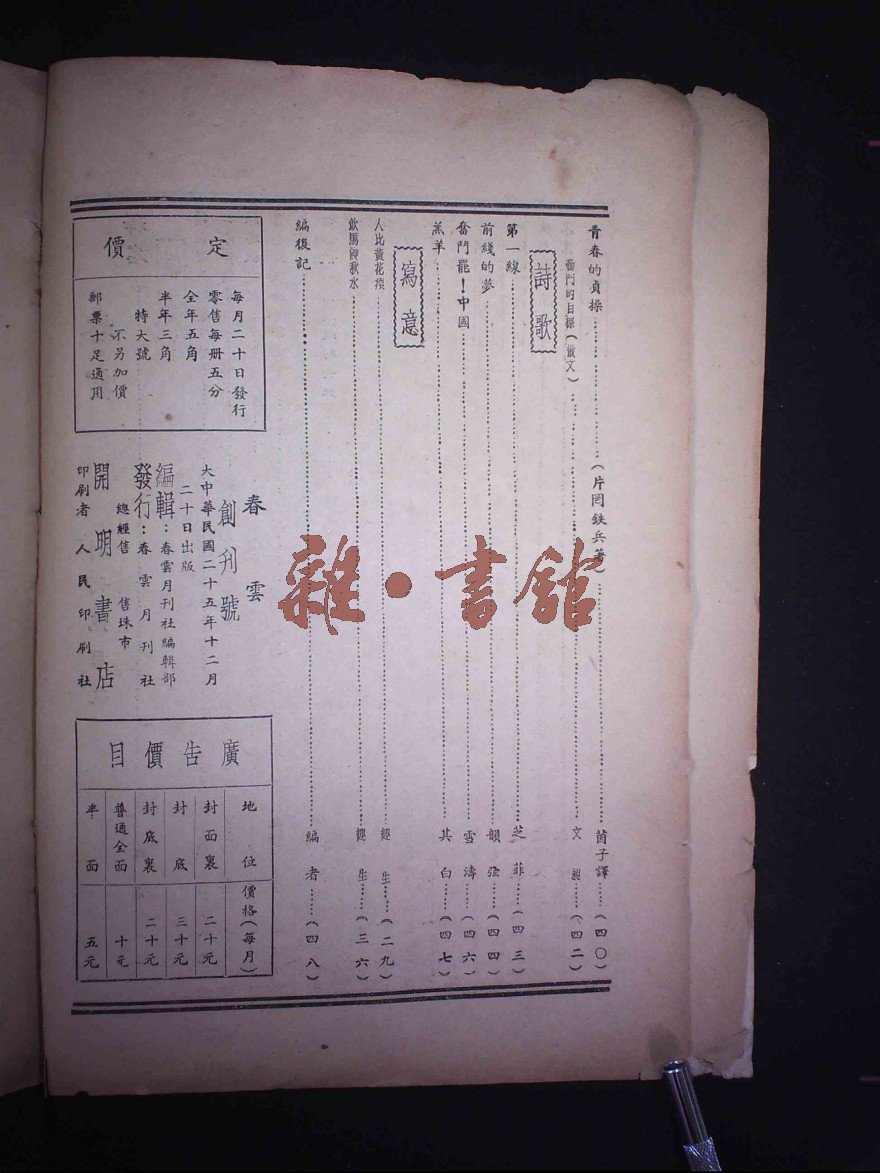 青春的貞操……(片岡鉄兵著)……茵子譯……(四〇)
奮鬥的目標(散文)……文……(四二)
詩歌
第一線……芝菲……(四三)
前綫的夢……韻……(四四)
奮鬥罷！中國……雪濤……(四六)
羔羊……其白……(四七)
寫意
人比黃花瘦……生……(二九)
飲馬渡秋水……生……(三六)
編後記……編者……(四八)
定價
每月二十日發行
零售每册五分
全年五角
半年三角
特大號
不另加價
郵票十足通用
春雲
創刋號
大中華民國二十五年十二月
二十日出版
編輯：春雲月刊社編輯部
發行：春雲月刊社
總經售 售珠市
開明書店
印刷者 人民印刷社
廣告價目
地位 價格(每月)
封面裏 二十元
封底 三十元
封底裏 二十元
普通全面 十元
半面 五元
雜·書館